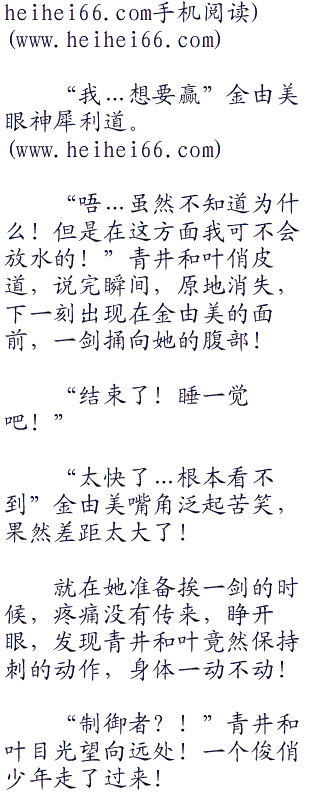 heihei66.com手机阅读)
(www.heihei66.com)
“我…想要赢”金由美
眼神犀利道。
(www.heihei66.com)
“唔…虽然不知道为什
么！但是在这方面我可不会
放水的！”青井和叶俏皮
道，说完瞬间，原地消失，
下一刻出现在金由美的面
前，一剑捅向她的腹部！
“结束了！睡一觉
吧！”
“太快了…根本看不
到”金由美嘴角泛起苦笑，
果然差距太大了！
就在她准备挨一剑的时
候，疼痛没有传来，睁开
眼，发现青井和叶竟然保持
刺的动作，身体一动不动！
“制御者？！”青井和
叶目光望向远处！一个俊俏
少年走了过来！